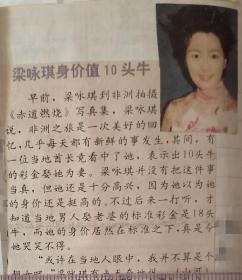 梁咏琪身价值10头牛
早前，梁咏琪到非洲拍摄
《赤道燃烧》写真集，梁咏琪
说，非洲之旅是一次美好的回
忆，几乎每天都有新鲜的事发生，其间，有
一位当地酋长竟看中了她，表示出10头牛
的彩金娶她为妻。梁咏琪并没有把这件事
当真，但她还是十分高兴，因为他以为她
的身价还是挺高的。不过后来一打听，才
知道当地男人娶老婆的标准彩金是18头
牛，而她的身价居然在标准之下，真是令
她哭笑不得。
“或许在当地人眼中，我并不算是个